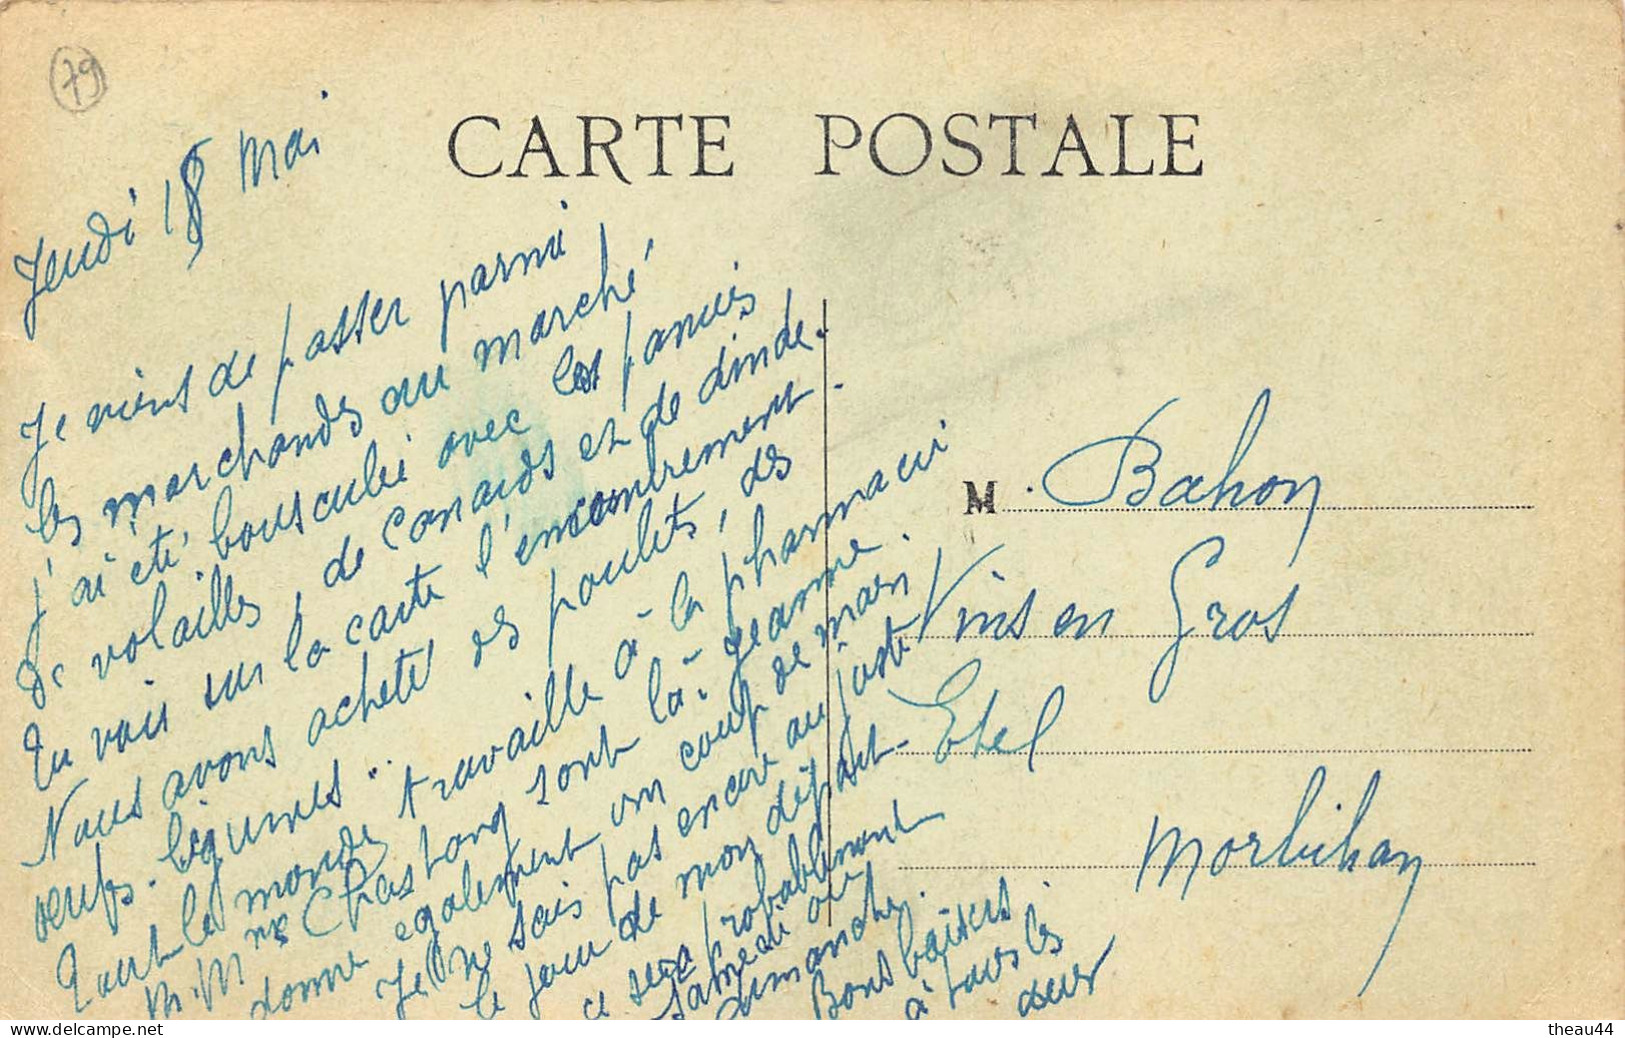 79
CARTE POSTALE
Jeudi 18 Mai
Je viens de passer parmi
les marchandes au marché
J'ai été bousculée avec les paniers
de volailles, de canards et de dinde.
Tu vois sur la carte l'encombrement.
Nous avons acheté des poulets, des
oeufs. légumes..
Tout le monde travaille à la pharmacie
M. Mme Chastang sont là. Jeanne
donne également un coup de main.
Je ne sais pas encore au juste
le jour de mon départ
ce sera probablement
samedi ou
dimanche.
Bons baisers
à tous les
deux
M. Bahon
Vins en Gros
Etel
Morbihan
delcampe.net
theau44